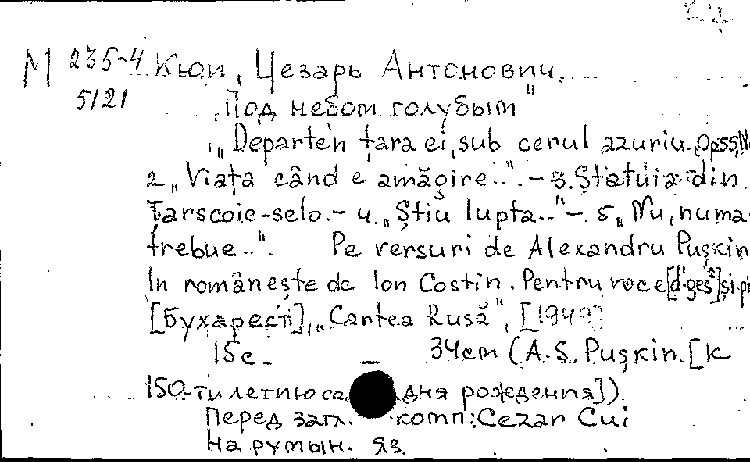 М 235-4 Кюи, Цезарь Антонович.
5121
„Под небом голубым"
„Departen ţara ei, sub cerul azuriu. Op55,N
2 „Viaţa când e amăgire..". - 3. Statuia din
Ţarscoie-selo. - 4. „Ştiu lupta.." - 5. „Nu, numa
trebue..". Pe versuri de Alexandru Puşkin
In româneşte de Ion Costin. Pentru voce [d-geş] şi pi
[Бухарест], „Cartea Rusă", [1949]
15с. — 34cm (A. S. Puşkin. [К
150-тилетию со дня рождения])
Перед загл. комп: Cezar Cui
На румын. яз.